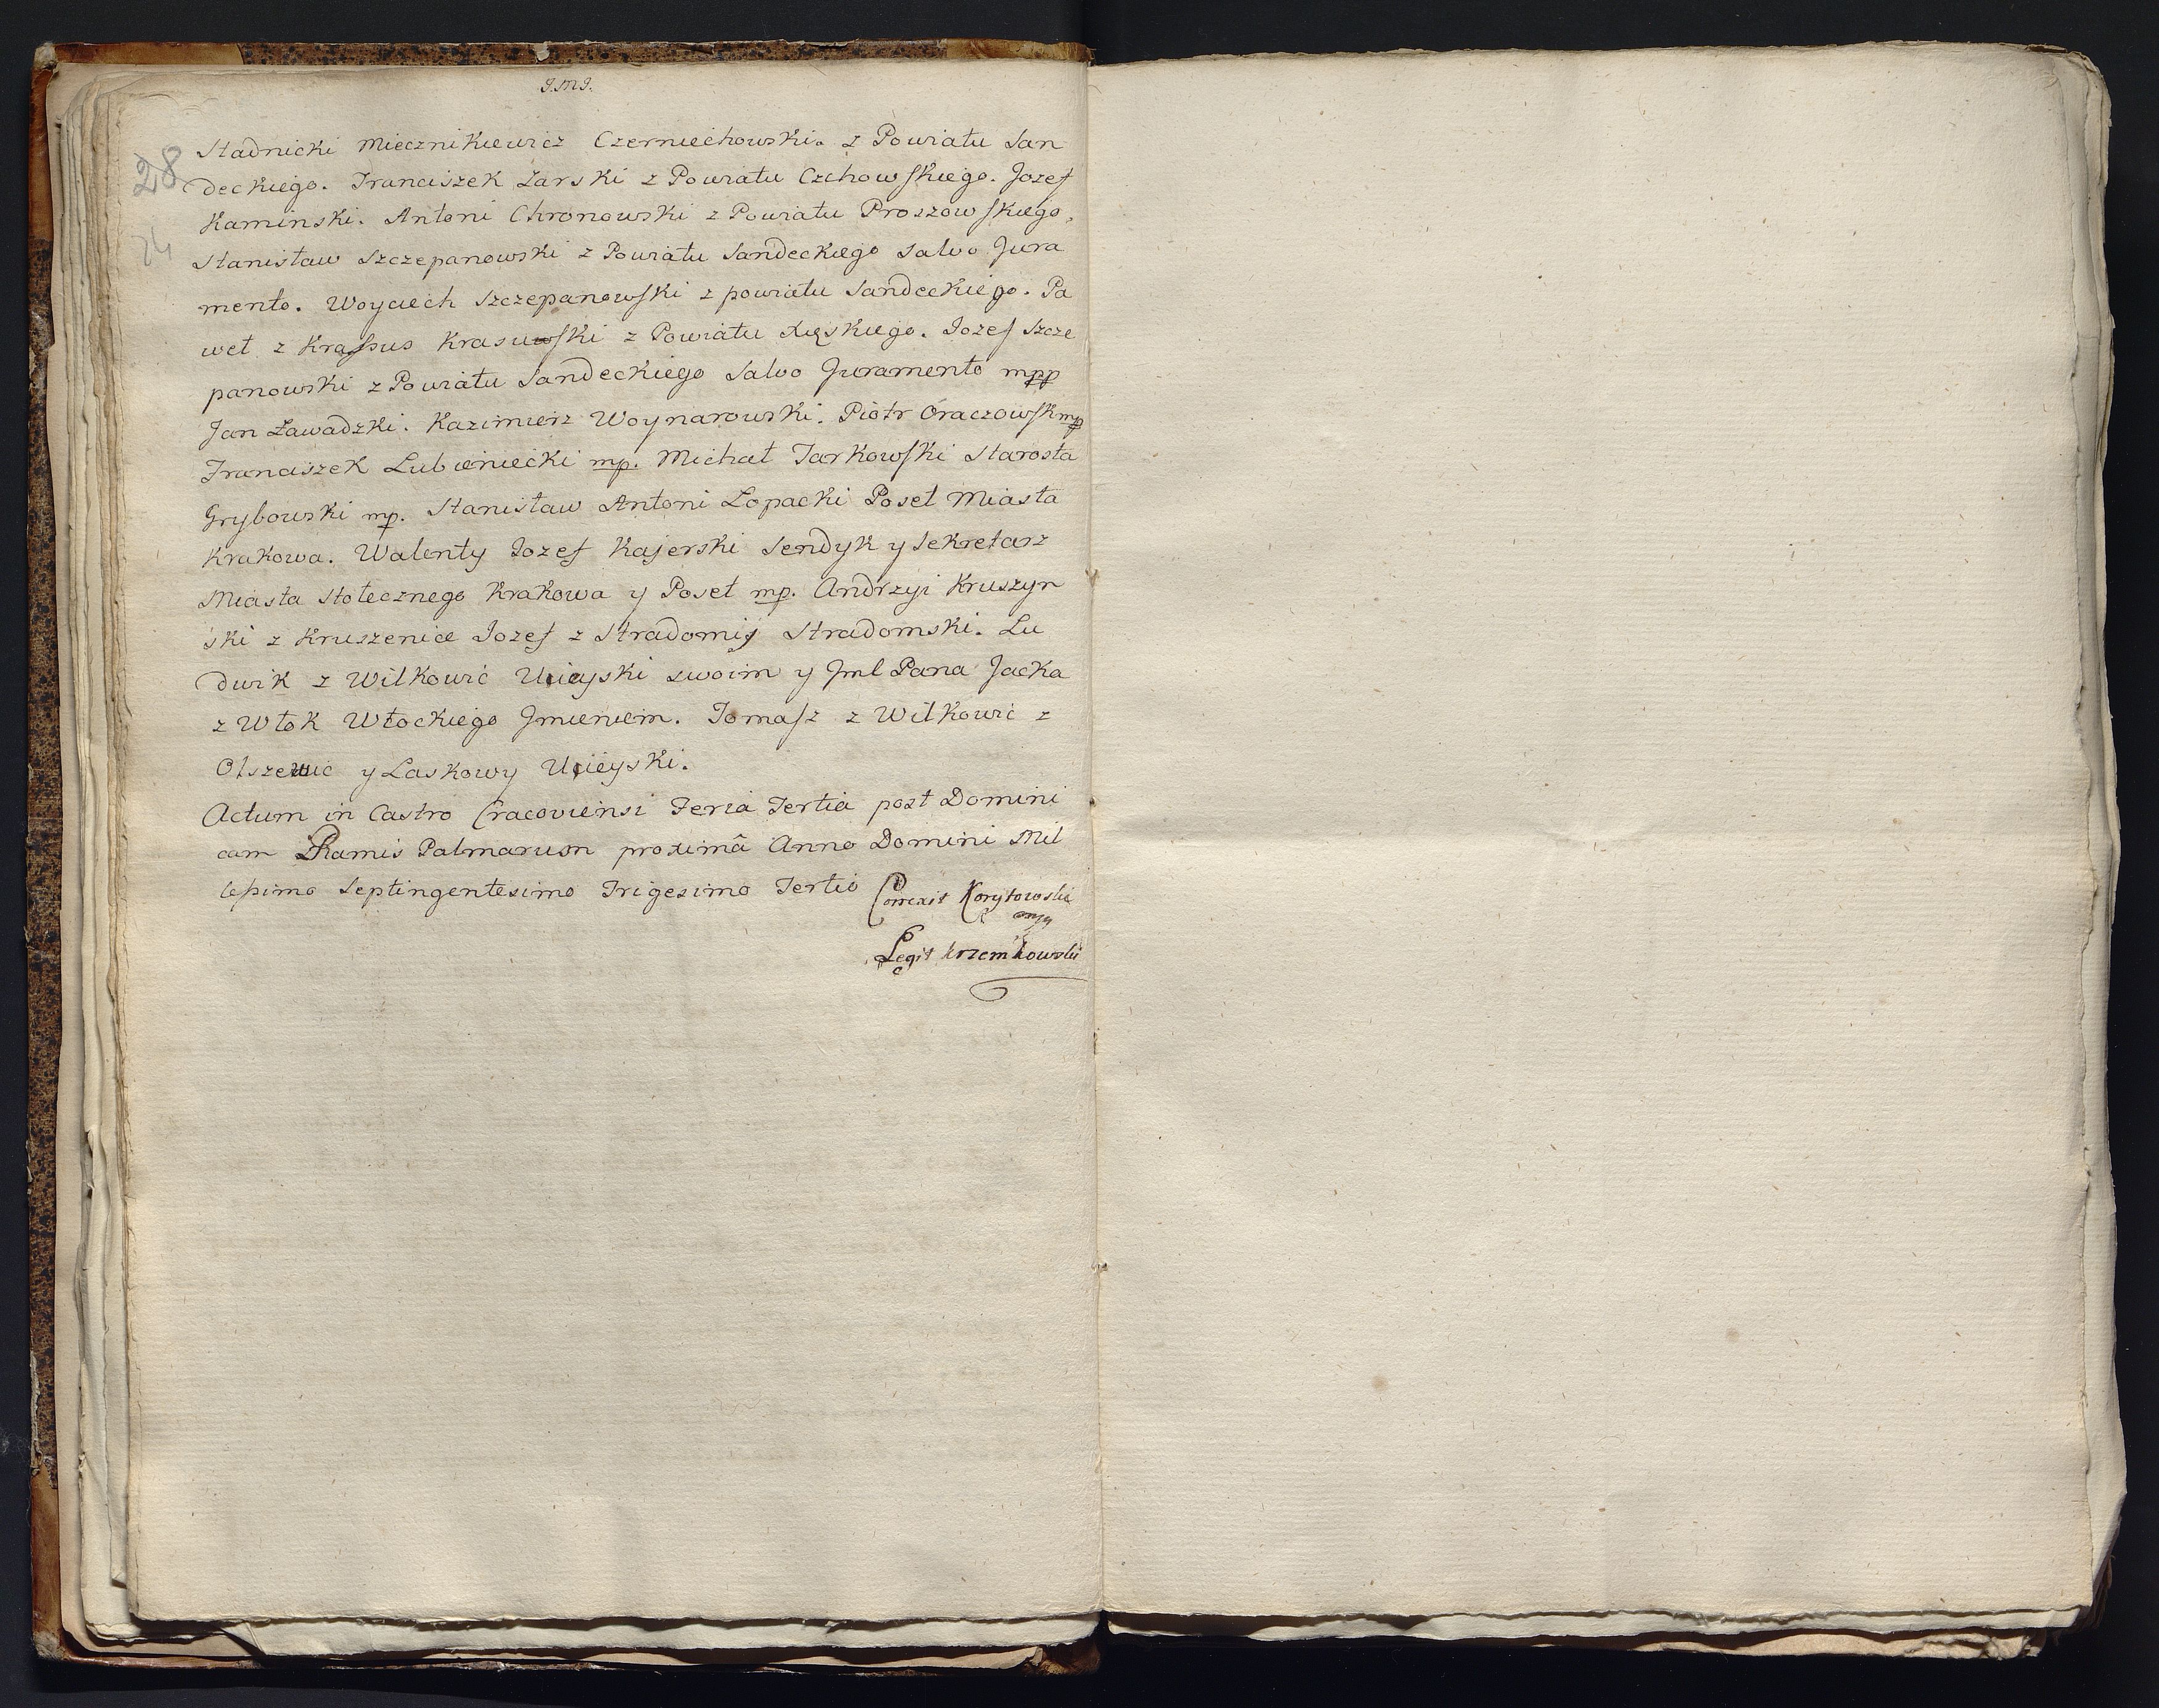 J.M.J.
28
74
Stadnicki Miecznikiewicz Czerniechowski. z Powiatu San
deckiego. Franciszek Zarski z Powiatu Czchowskiego. Jozef
Kaminski. Antoni Chronowski z Powiatu Proszowskiego.
Stanisław Szczepanowski z Powiatu Sandeckiego salvo Jura
mento. Woyciech Szczepanowski z powiatu Sandeckiego. Pa
weł z Krassus Krasuski z Powiatu Xięskiego. Jozef Szcze
panowski z Powiatu Sandeckiego Salvo Juramento mpp
Jan Zawadzki. Kazimierz Woynarowski. Piotr Oraczowski mp
Franciszek Lubieniecki mp. Michał Jarkowski Starosta
Grybowski mp. Stanisław Antoni Łopacki Poseł Miasta
Krakowa. Walenty Jozef Kajerski Sendyk y Sekretarz
Miasta Stołecznego Krakowa y Poseł mp. Andrzyi Kruszyn
ski z Kruszenice Jozef z Stradomij Stradomski. Lu
dwik z Wilkowic Uieyski swoim y Jml Pana Jacka
z Włok Włockiego Jmieniem. Tomasz z Wilkowic z
Olszewic y Laskowy Uieyski.
Actum in Castro Cracoviensi Feria Tertia post Domini
cam Ramis Palmarum proximâ Anno Domini Mil
lesimo Septingentesimo Trigesimo Tertio
Correxit Korytowski
mpp
Legit Krzemkowski